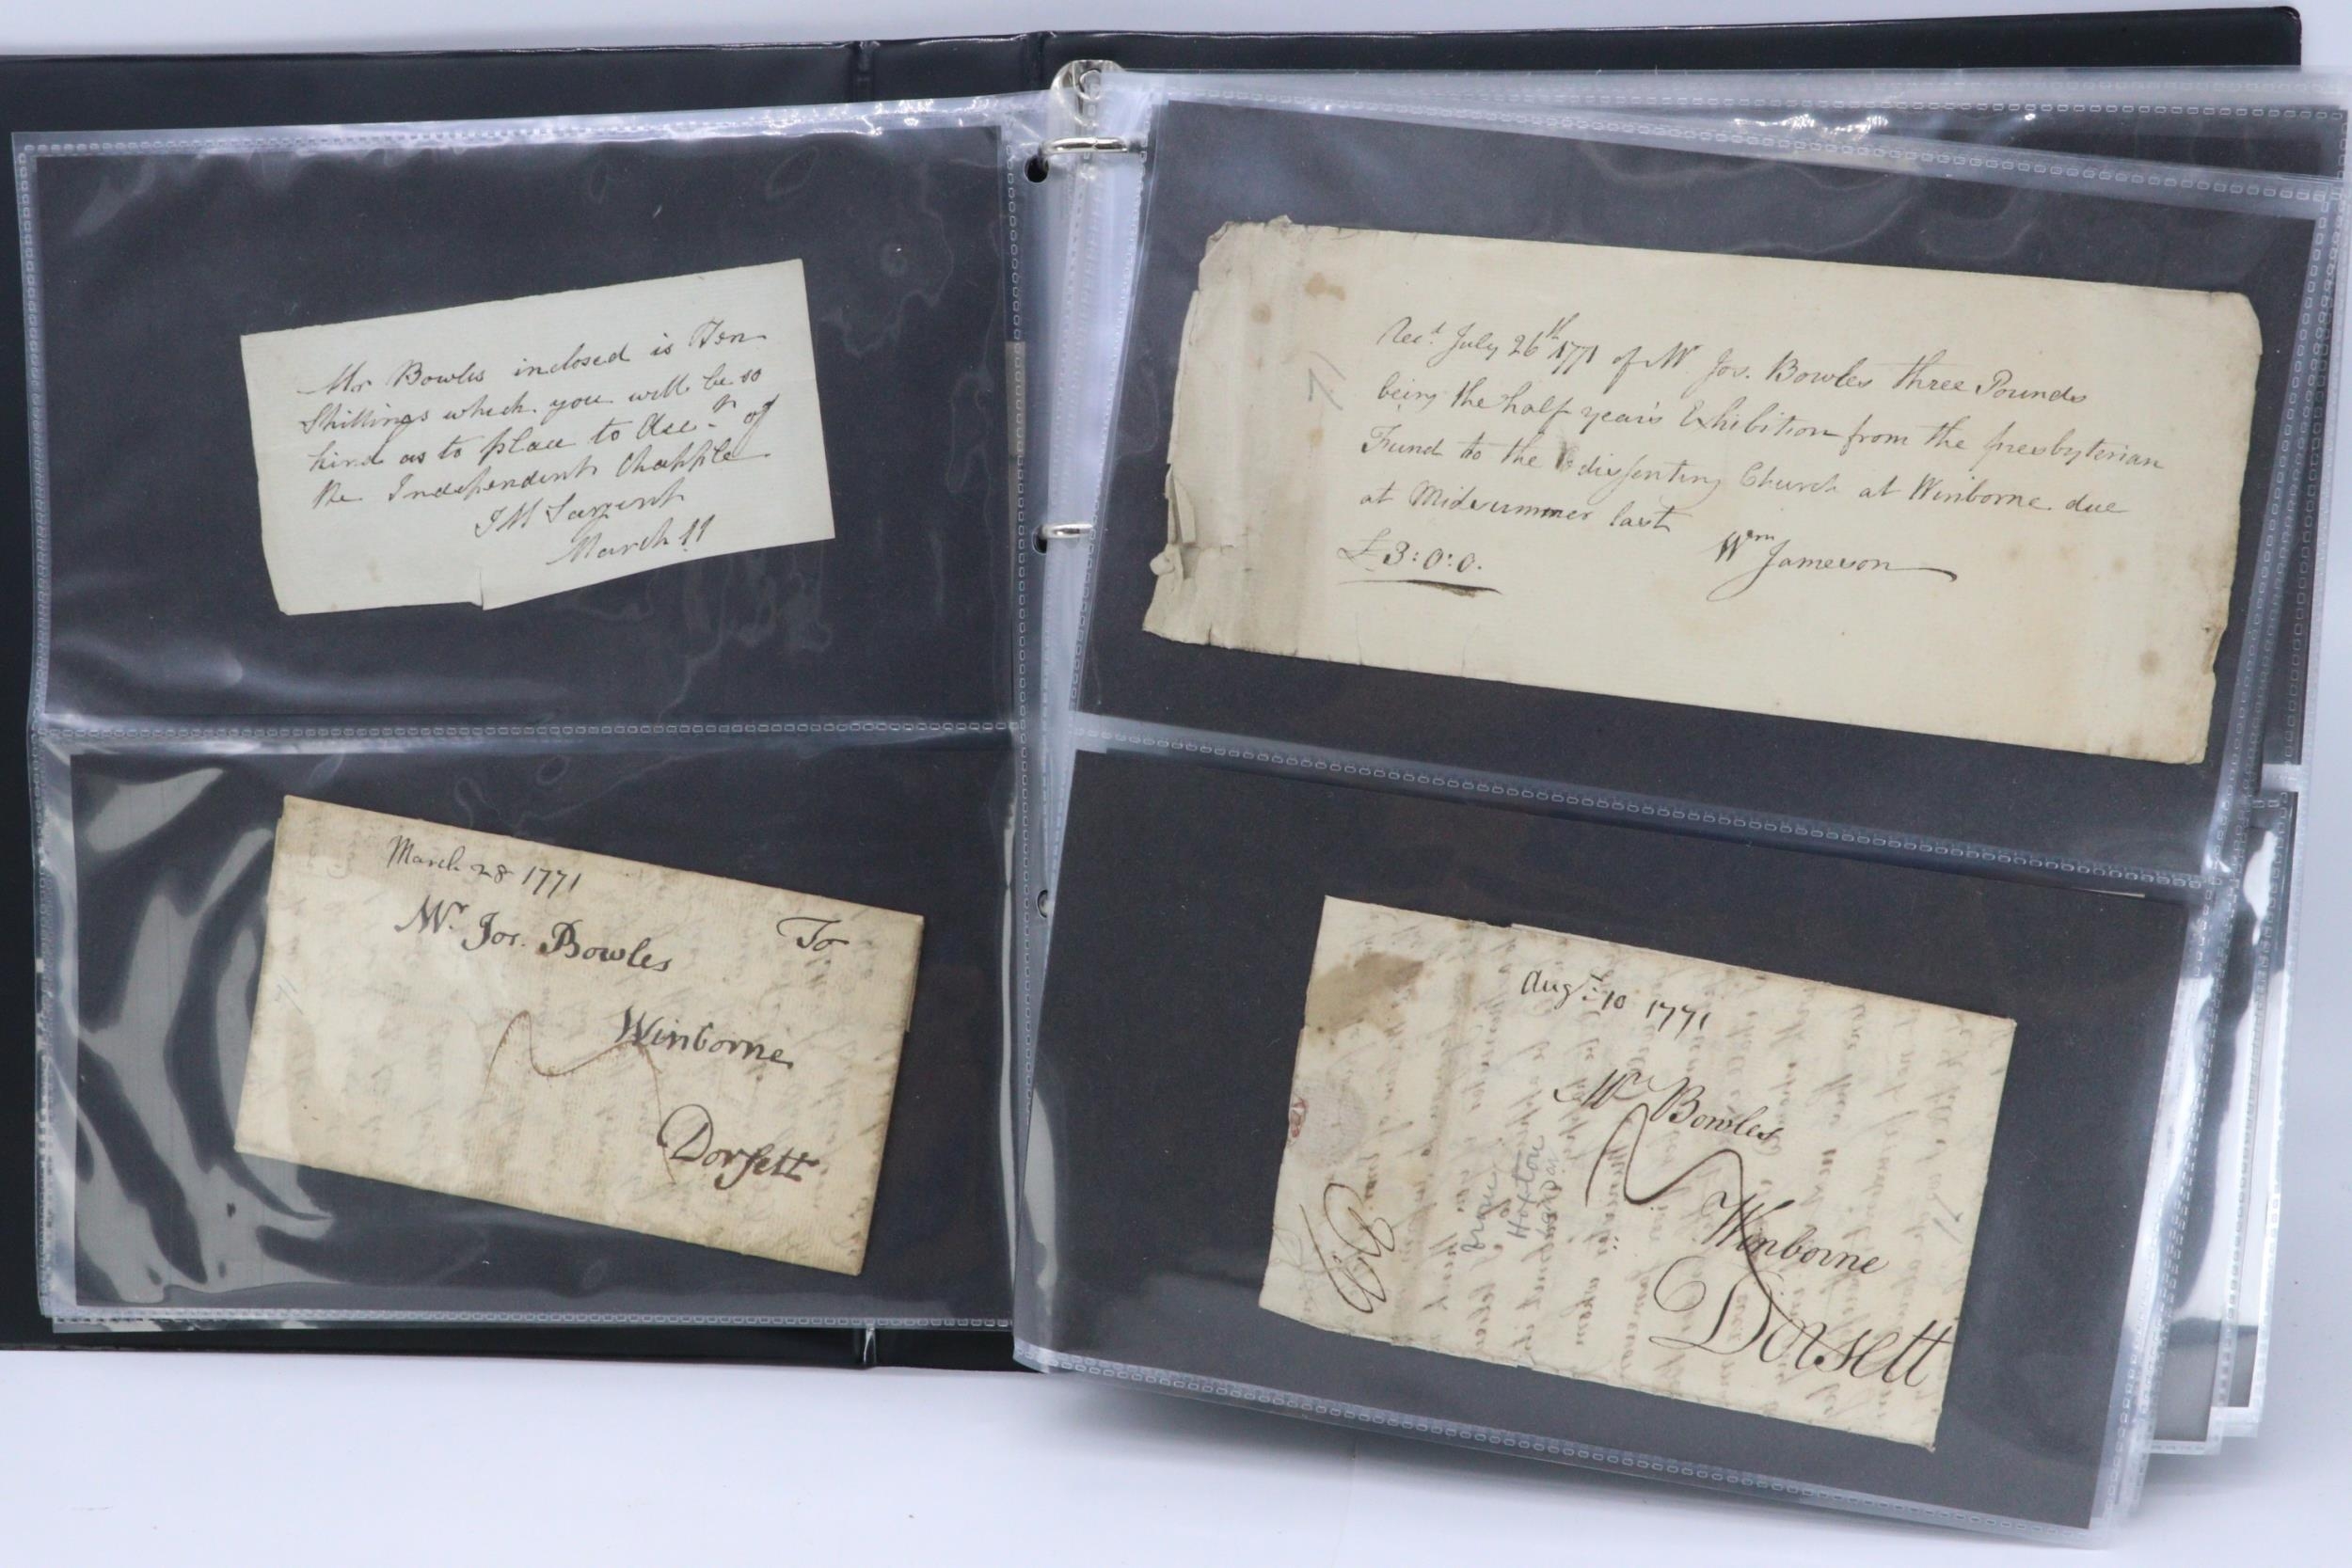 Mr Bowles inclosed is Ten
Shillings which you will be so
kind as to place to Acc.t of
the Independent Chapple
J M Sargent
March 11
March 28 1771
To
Mr. Jos. Bowles
Winborne
Dorsett
71
Rec.d July 26th 1771 of Mr. Jos. Bowles three Pounds
being the half year's Exhibition from the presbyterian
Fund to the dissenting Church at Winborne due
at Midsummer last
£3:0:0. Wm Jameson
Aug.t 10 1771
Mr. Bowles
Winborne
Dorsett
Hoxton